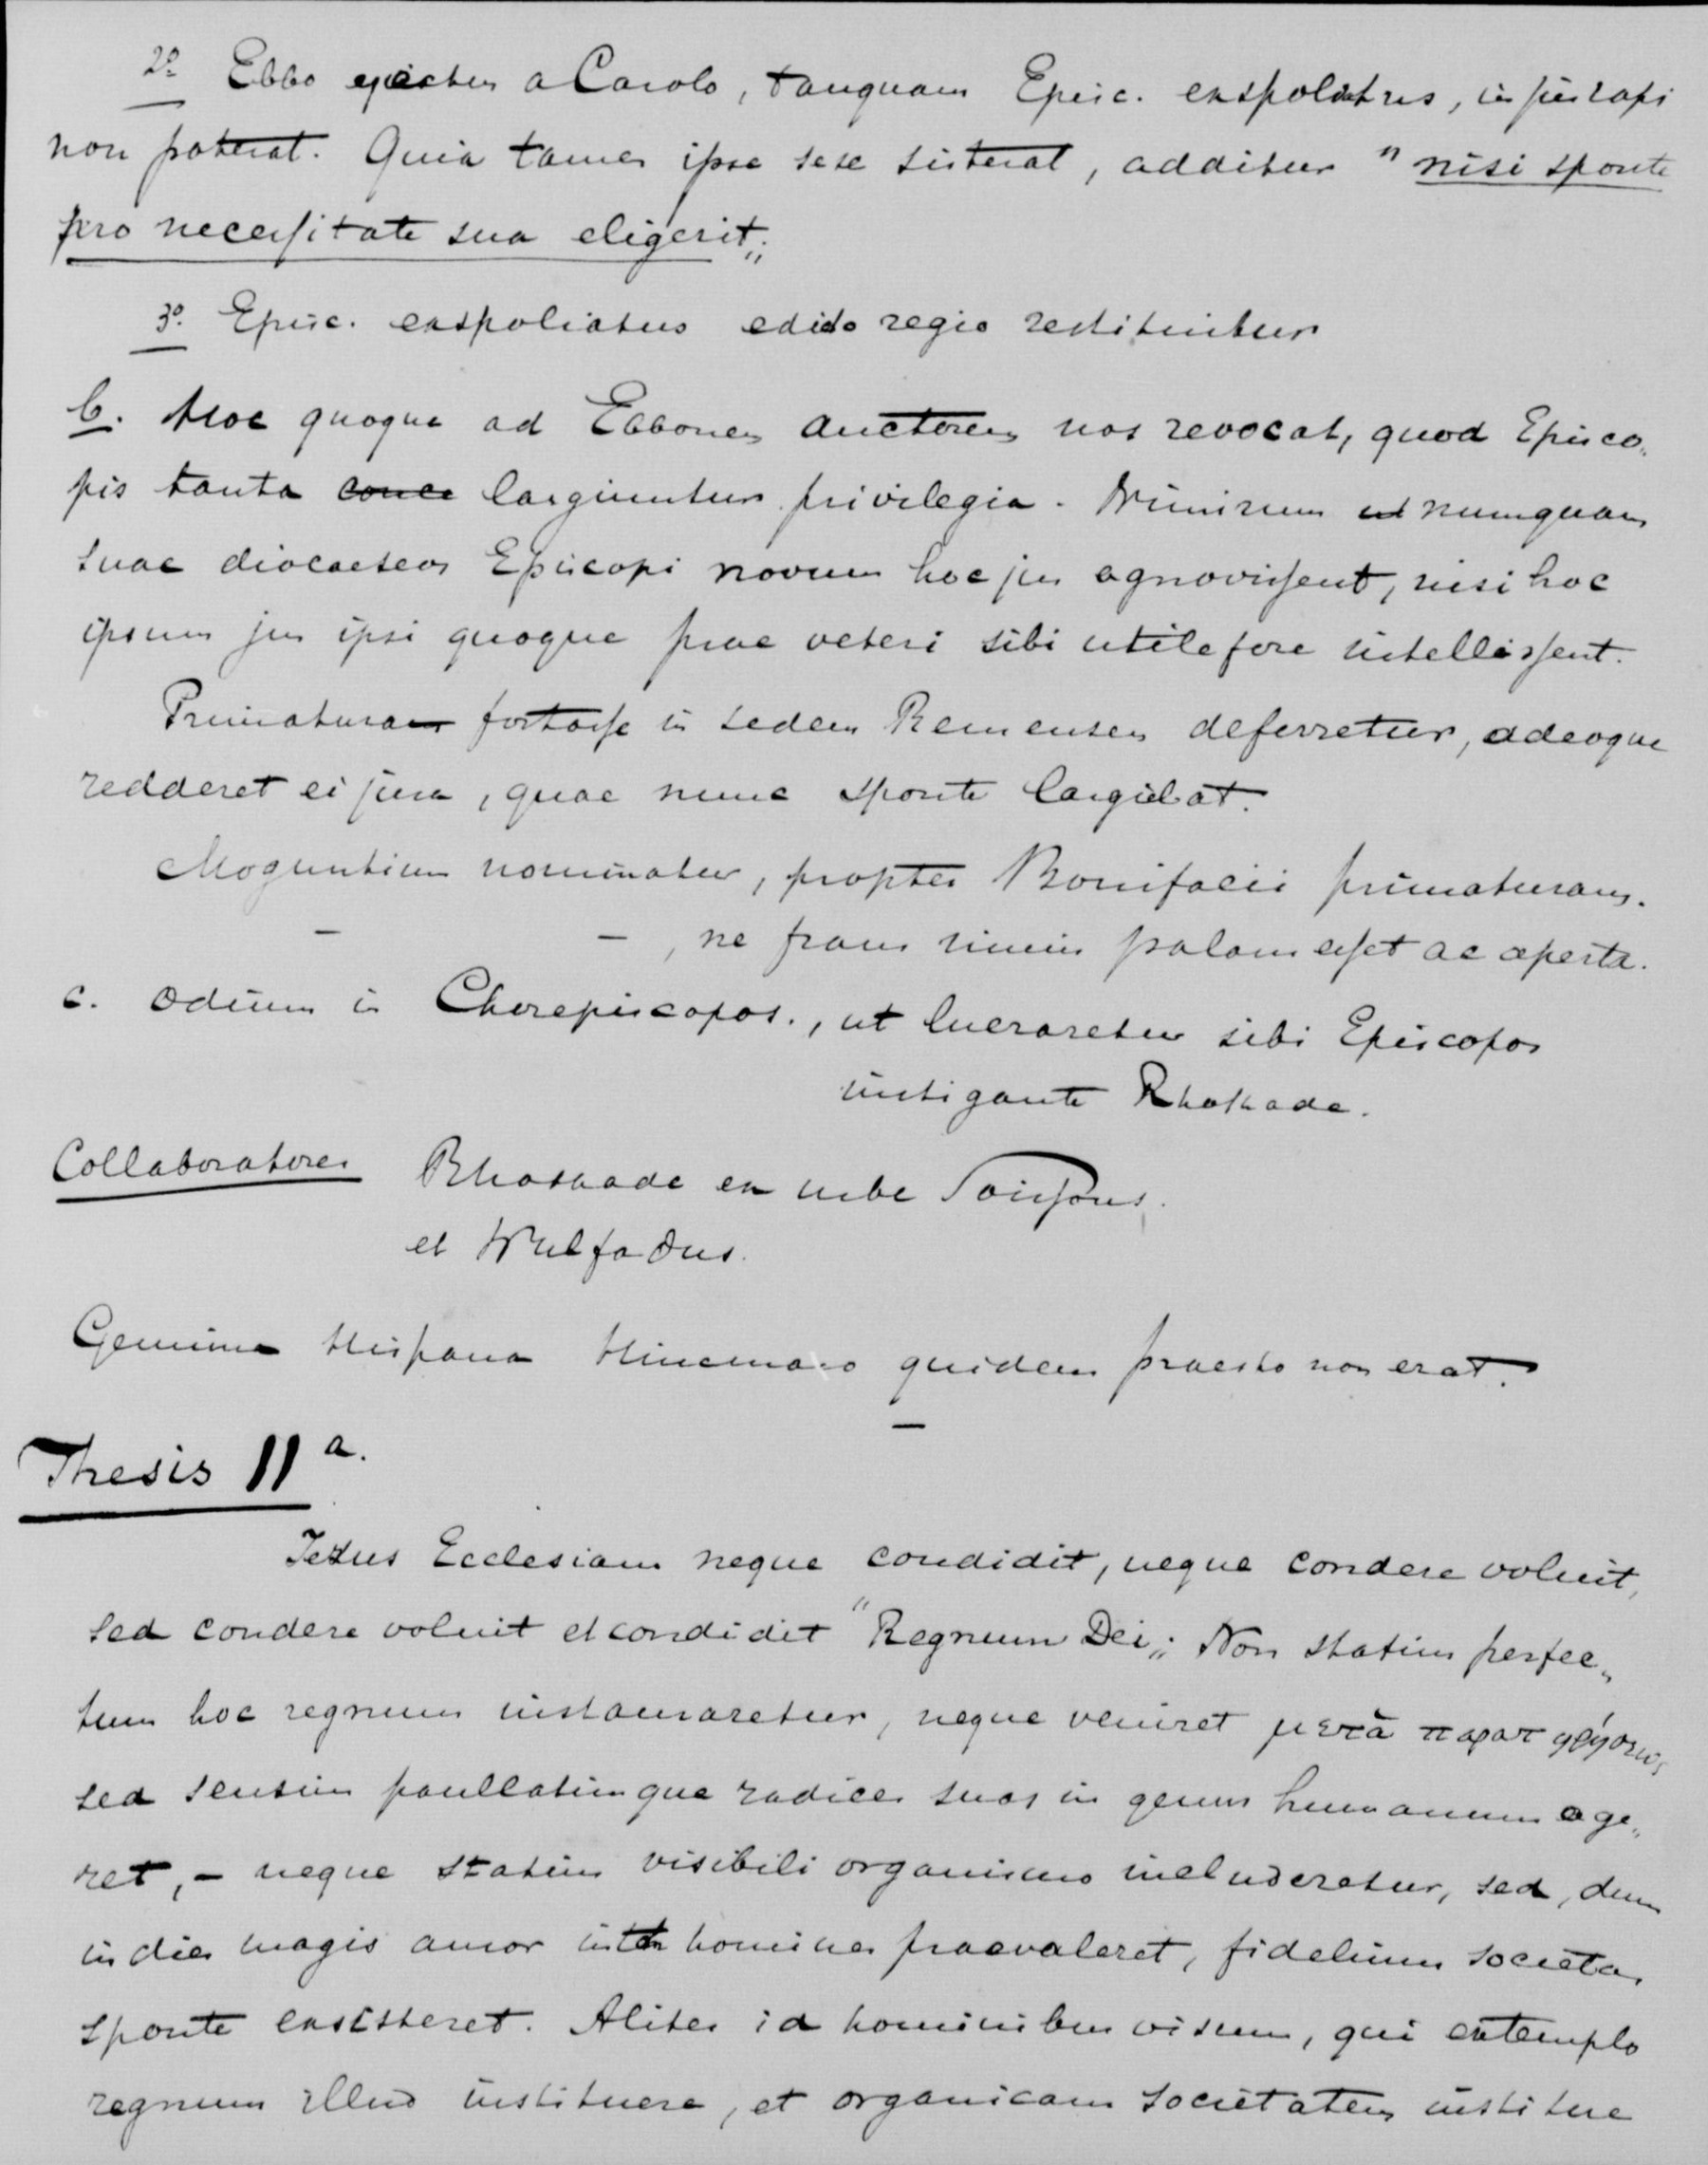 2º Ebbo ejectus a Carolo, tanquam Episc. exspoliatus, in jus rapi
non poterat. Quia tamen ipse sese sisterat, additur "nisi sponte
pro necessitate sua eligerit„
3º. Episc. exspoliatus edicto regio restituitur
b. Hoc quoque ad Ebbonem auctorem nos revocat, quod Episco„
pis tanta largiuntur privilegia. Nimirum numquam
suae dioceseos Episcopi novum hoc jus agnovissent, nisi hoc
ipsum jus ipsi quoque prae veteri sibi utile fore intellissent.
Primatura fortasse in sedem Remensem deferretur, adeoque
redderet ei jura, quae nunc sponte largiebat.
Moguntium nominatur, propter Bonifacii primaturam.
– – , ne fraus nimis palam esset ac aperta.
c. Odium in Chorepiscopos., ut lucraretur sibi Episcopos
instigante Rhothade.
Collaboratores Rhothade ex urbe Soissons.
et Wulfadus.
Genuina Hispana Hincmaro quidem praesto non erat.
–
Thesis 11 a.
Jezus Ecclesiam neque condidit, neque condere voluit,
sed condere voluit et condidit "Regnum Dei„: Non statim perfec„
tum hoc regnum instauraretur, neque veniret μετὰ παρατηρήσεως
sed sensim paullatimque radices suas in genus humanum age„
ret, – neque statim visibili organismo includeretur, sed, dum
in dies magis amor inter homines praevaleret, fidelium societas
sponte exsisteret. Aliter id hominibus visum, qui extemplo
regnum illud instituere, et organicam societatem institue